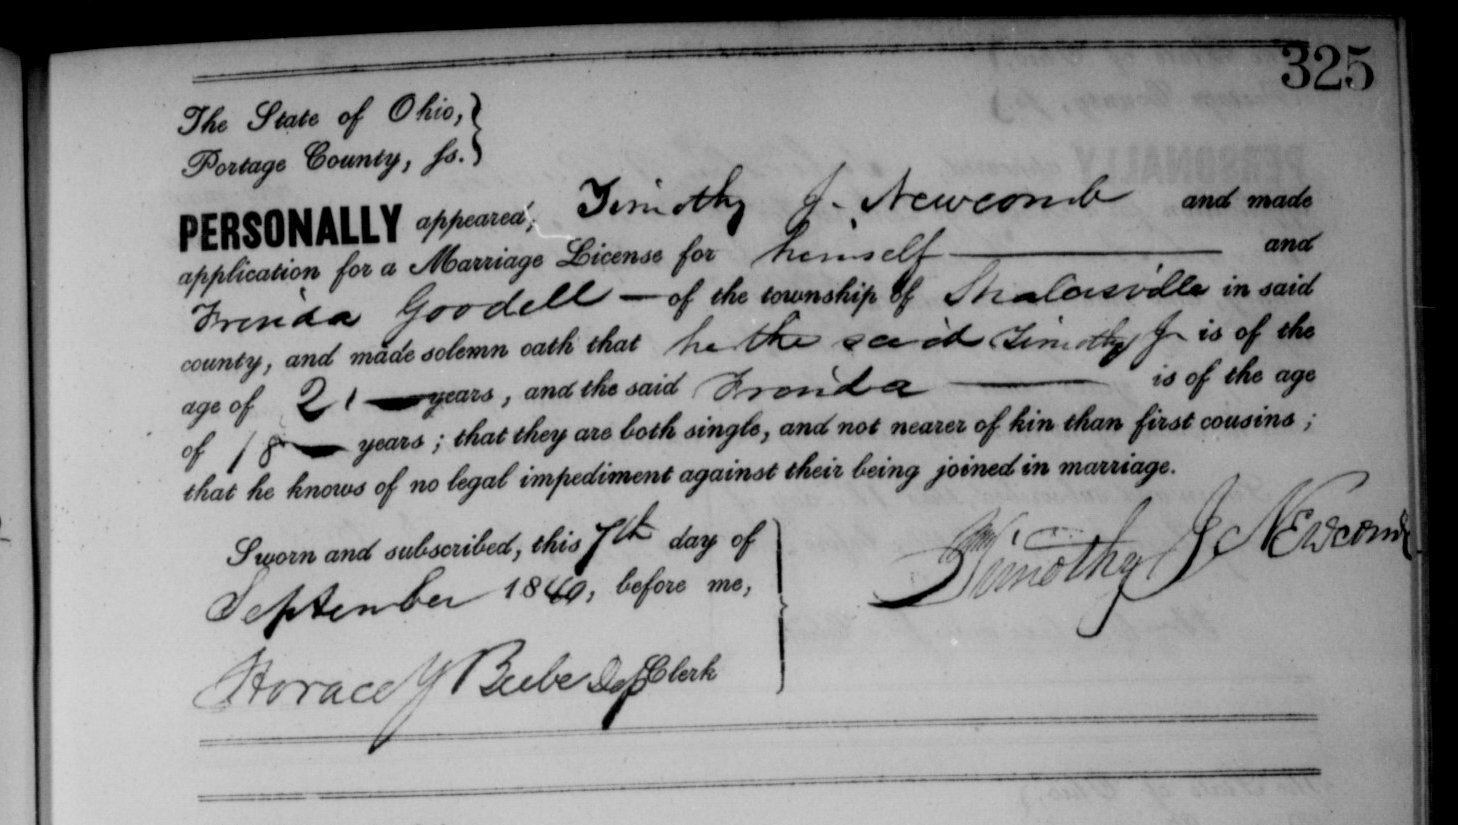 325
The State of Ohio,
Portage County, ss.
PERSONALLY appeared, Timothy J. Newcomb and made
application for a Marriage License for himself and
Goodell of the township of Shalersville in said
county, and made solemn oath that he the said Timothy J is of the
age of 21 years, and the said is of the age
of 18 years; that they are both single, and not nearer of kin than first cousins;
that he knows of no legal impediment against their being joined in marriage.
Sworn and subscribed, this 7th day of
September 1840, before me,
Timothy J. Newcomb
Horace Y Beebe Dep Clerk